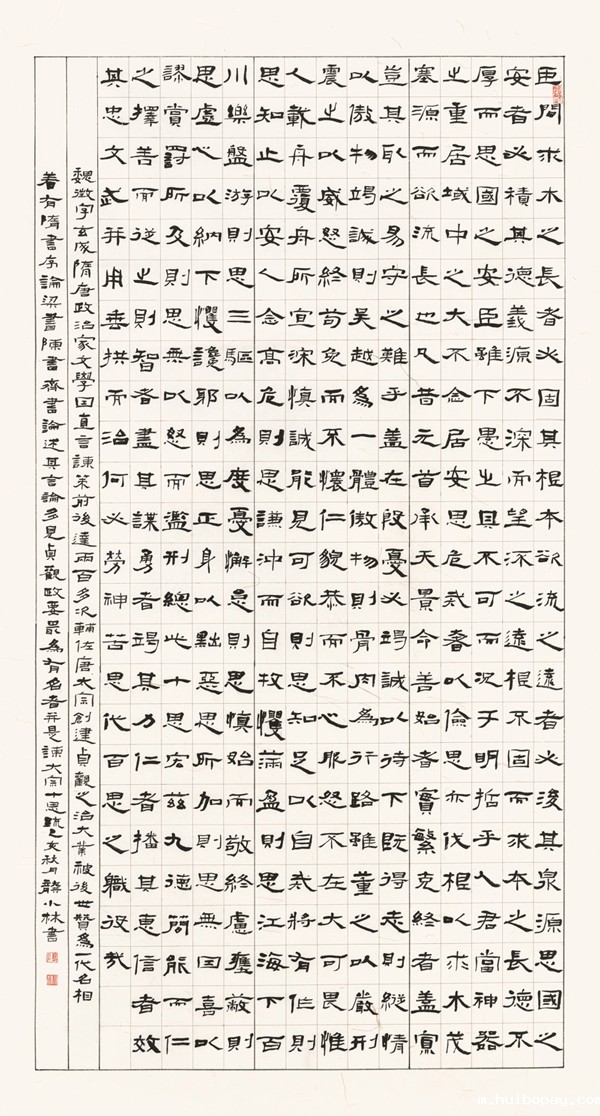 臣聞求木之長者必固其根本欲流之遠者必浚其泉源思國之
安者必積其德義源不深而望流之遠根不固而求本之長德不
厚而思國之安臣雖下愚之且不可而況于明哲乎人君當神器
之重居域中之大不念居安思危戒奢以儉思亦伐根以求木茂
塞源而欲流長也凡昔元首承天景命善始者實繁克終者蓋寡
豈其取之易守之難乎蓋在殷憂必竭誠以待下既得志則縱情
以傲物竭誠則吳越為一體傲物則骨肉為行路雖董之以嚴刑
震之以威怒終苟免而不懷仁貌恭而不心服怒不在大可畏惟
人載舟覆舟所宜深慎誠能見可欲則思知足以自戒將有作則
思知止以安人念高危則思謙沖而自牧懼滿盈則思江海下百
川樂盤游則思三驅以為度憂懈怠則思慎始而敬終慮壅蔽則
思虛心以納下懼讒邪則思正身以黜惡思所加則思無因喜以
謬賞罰所及則思無以怒而濫刑總此十思宏茲九德簡能而仁
之擇善而從之則智者盡其謀勇者竭其力仁者播其惠信者效
其忠文武并用垂拱而治何必勞神苦思代百思之職役哉
魏徵字玄成隋唐政治家文學因直言諫策前後達兩百多次輔佐唐太宗創建貞觀之治大業被後世贊為一代名相
著有隋書序論梁書陳書齊書論述其言論多見貞觀政要最為有名者并是諫太宗十思疏乙亥秋月龔小林書
m.huibopau.com